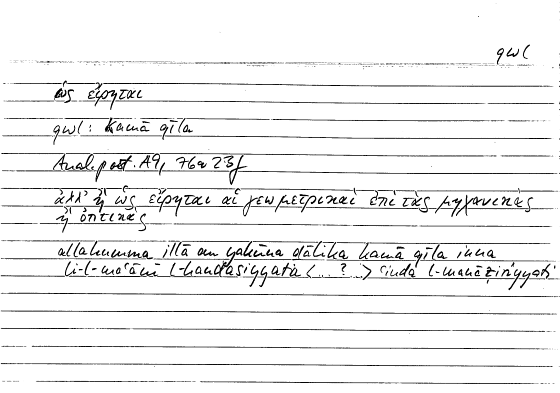 qwl
ὡς εἴρηται
qwl: Kamā qīla
Anal. post. A9, 76a 23f
ἀλλ' ἢ ὡς εἴρηται αἱ γεωμετρικαὶ ἐπὶ τὰς μηχανικὰς
ἢ ὀπτικάς
allahumma illā an yakūna ḏālika kamā qīla inna
li-l-maʿānī l-handasiyyata <...?> ʿinda l-manāẓiriyyati